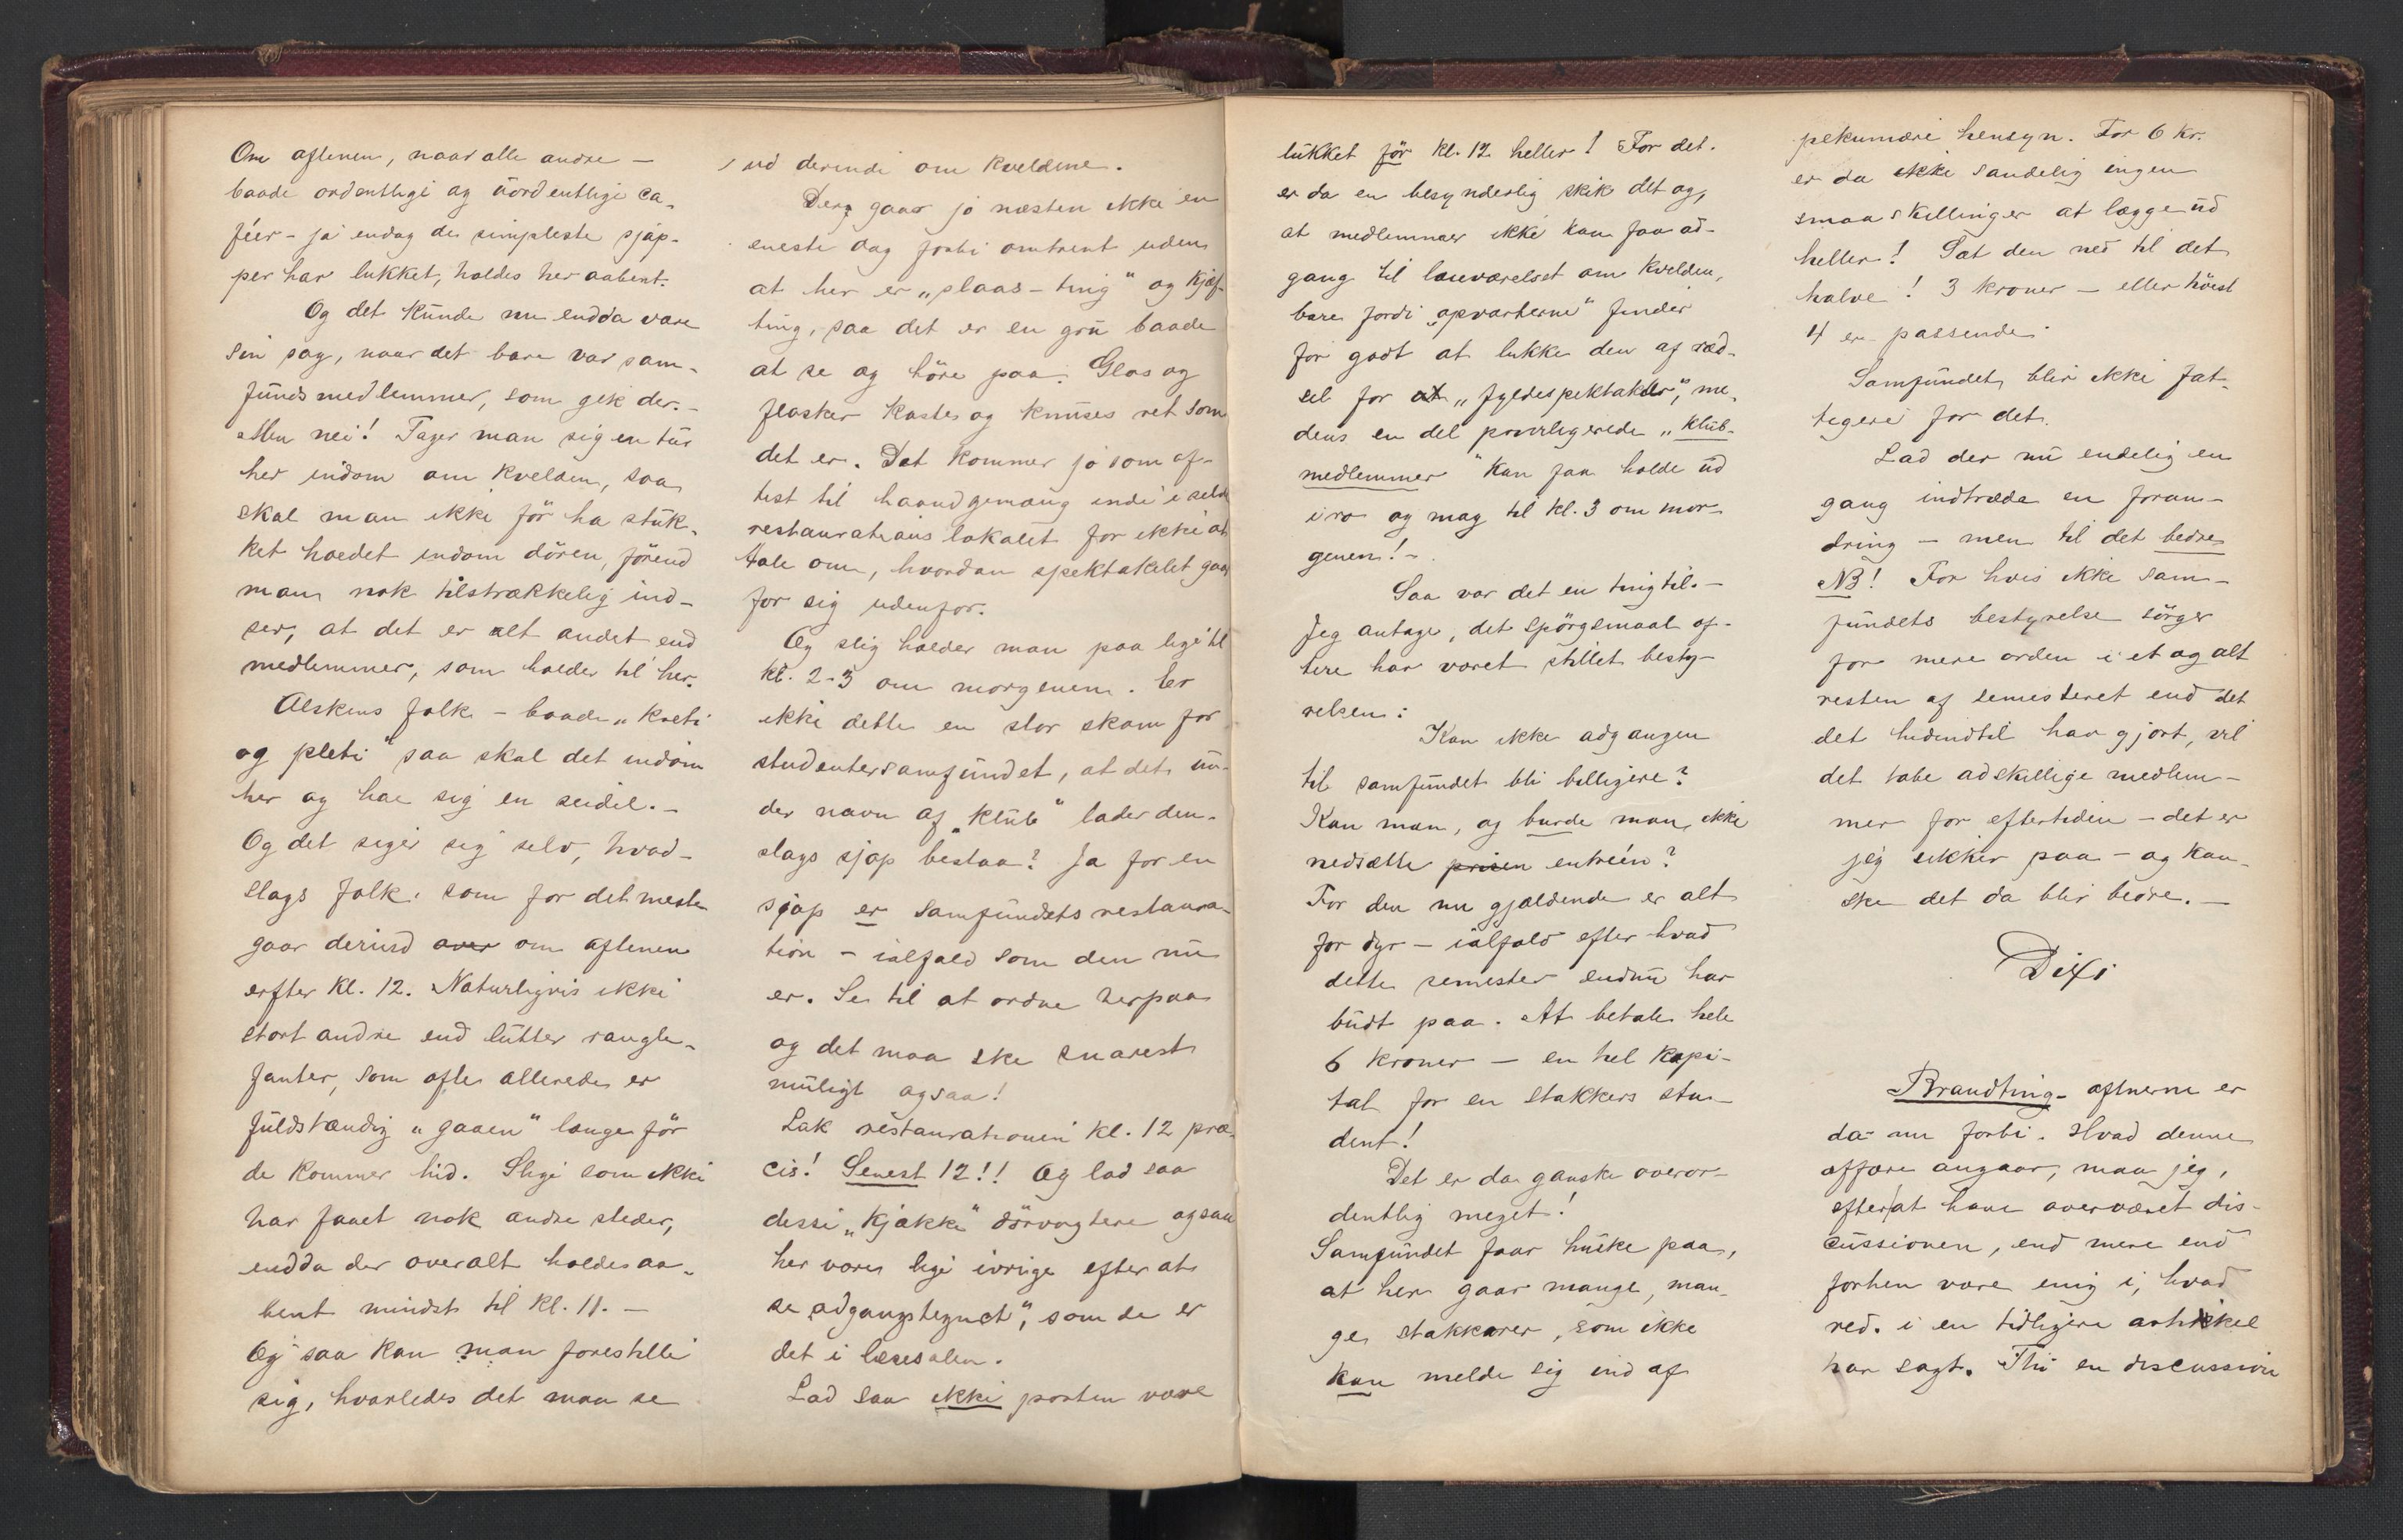 Om aftenen, naar alle andre —
baade ordentlige og uordentlige ca-
féer - ja endog de simpleste sjap-
per har lukket, holdes her aabent.
Og det kunde nu endda være
sin sag, naar det bare var sam-
fundsmedlemmer, som gik der. -
Men nei! Tager man sig en tur
her indom om kvelden, saa
skal man ikke før ha stuk-
ket hoedet indom døren, førend
man nok tilstrækkelig ind-
ser, at det er alt andet end
medlemmer, som holder til her.
Alskens folk - baade „kreti
og pleti" saa skal det indom
her og hae sig en seidel. -
Og det siger sig selv, hvad-
slags folk. som for det meste
gaar derind over om aftenen
erfter kl. 12. Naturligvis ikke
stort andre end lutter rangle-
fanter, som ofte allerede er
fuldstændig „gaaen" længe før
de kommer hid. Slige som ikke
har faaet nok andre steder,
endda der overalt holdes aa-
bent mindst til kl. 11. —
Og saa kan man forestille
sig, hvorledes det maa se
ud derinde om kveldene.
Derg gaar jo næsten ikke en
eneste dag forbi omtrent uden
at her er „slaas-ting" og kjæf-
ting, saa det er en gru baade
at se og höre paa. Glas og
flasker kastes og knuses ret som
det er. Det kommer jo som of-
test til haandgemæng inde i selve
restaurationslokalet for ikke at
tale om, hvordan spektakelet gaar
for sig udenfor.
Og slig holder man paa lige til
kl. 2-3 om morgenen. Er
ikke dette en stor skam for
studentersamfundet, at det un-
der navn af „klub" lader den-
slags sjap bestaa? Ja for en
sjap er samfundets restaura-
tion - ialfald som den nu
er. Se til at ordne herpaa
og det maa ske snarest
muligt ogsaa!
Luk restaurationen kl. 12 præ-
cis! Senest 12!! Og lad saa
disse „kjække" dørvogtere ogsaa
her være lige ivrige efter at
se „adgangstegnet", som de er
det i læsesalen.
Lad saa ikke porten være
lukket før kl. 12 heller! For det.
er da en besynderlig skik det og,
at medlemmer ikke kan faa ad-
gang til læseværelset om kvelden,
bare fordi „opvarterne" finder
for godt at lukke den af ræd-
sel for at „fyldespektakler", me-
dens en del priviligerede „klub-
medlemmer" kan faa holde ud
i ro og mag til kl. 3 om mor-
genen! -
Saa var det en ting til. -
Jeg antager, det spørgsmaal of-
tere har været stillet besty-
relsen:
Kan ikke adgangen
til samfundet bli billigere?
Kan man, og burde man, ikke
nedsætte prisen entréen?
For den nu gjældende er alt
for dyr - ialfald efter hvad
dette semester endnu har
budt paa. At betale hele
6 kroner — en hel kapi-
tal for en stakkers stu-
dent!
Det er da ganske overor-
dentlig meget!
Samfundet faar huske paa,
at her gaar mange, man-
ge stakkarer, som ikke
kan melde sig ind af
pekuniære hensyn. For 6 kr.
er da ikke sandelig ingen
smaaskillinger at lægge ud
heller! Sæt den ned til det
halve! 3 kroner — eller höist
4 er passende.
Samfundet blir ikke fat-
tigere for det.
Lad der nu endelig en
gang indtræde en foran-
dring — men til det bedre
NB! For hvis ikke sam-
fundets bestyrelse sörger
for mere orden i et og alt
resten af semesteret end det
det hidindtil har gjort, vil
det tabe adskillige medlem-
mer for eftertiden - det er
jeg sikker paa - og kan-
ske det da blir bedre. —
Dixi
Brandting-aftnerne er
da nu forbi. Hvad denne
affære angaar, maa jeg,
efter at have overværet dis-
cussionen, end mere end
forhen være enig i, hvad
red. i en tidligere artikkel
har sagt. Thi en discussion